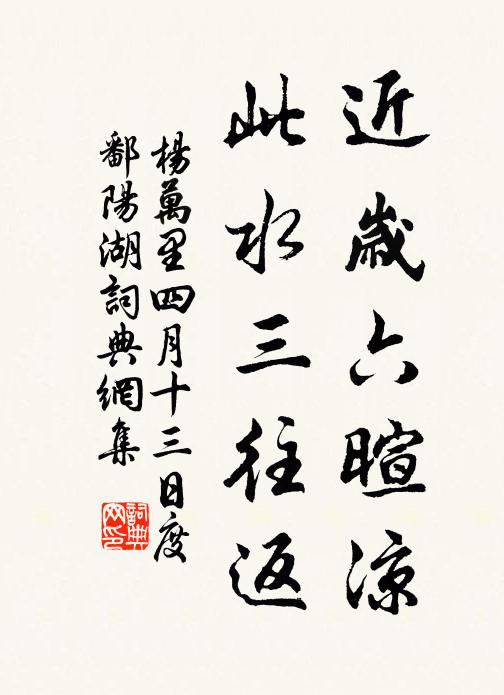 近歲六暄涼
此水三往返
楊萬里四月十三日度
鄱陽湖詞典網集
詞典
网印